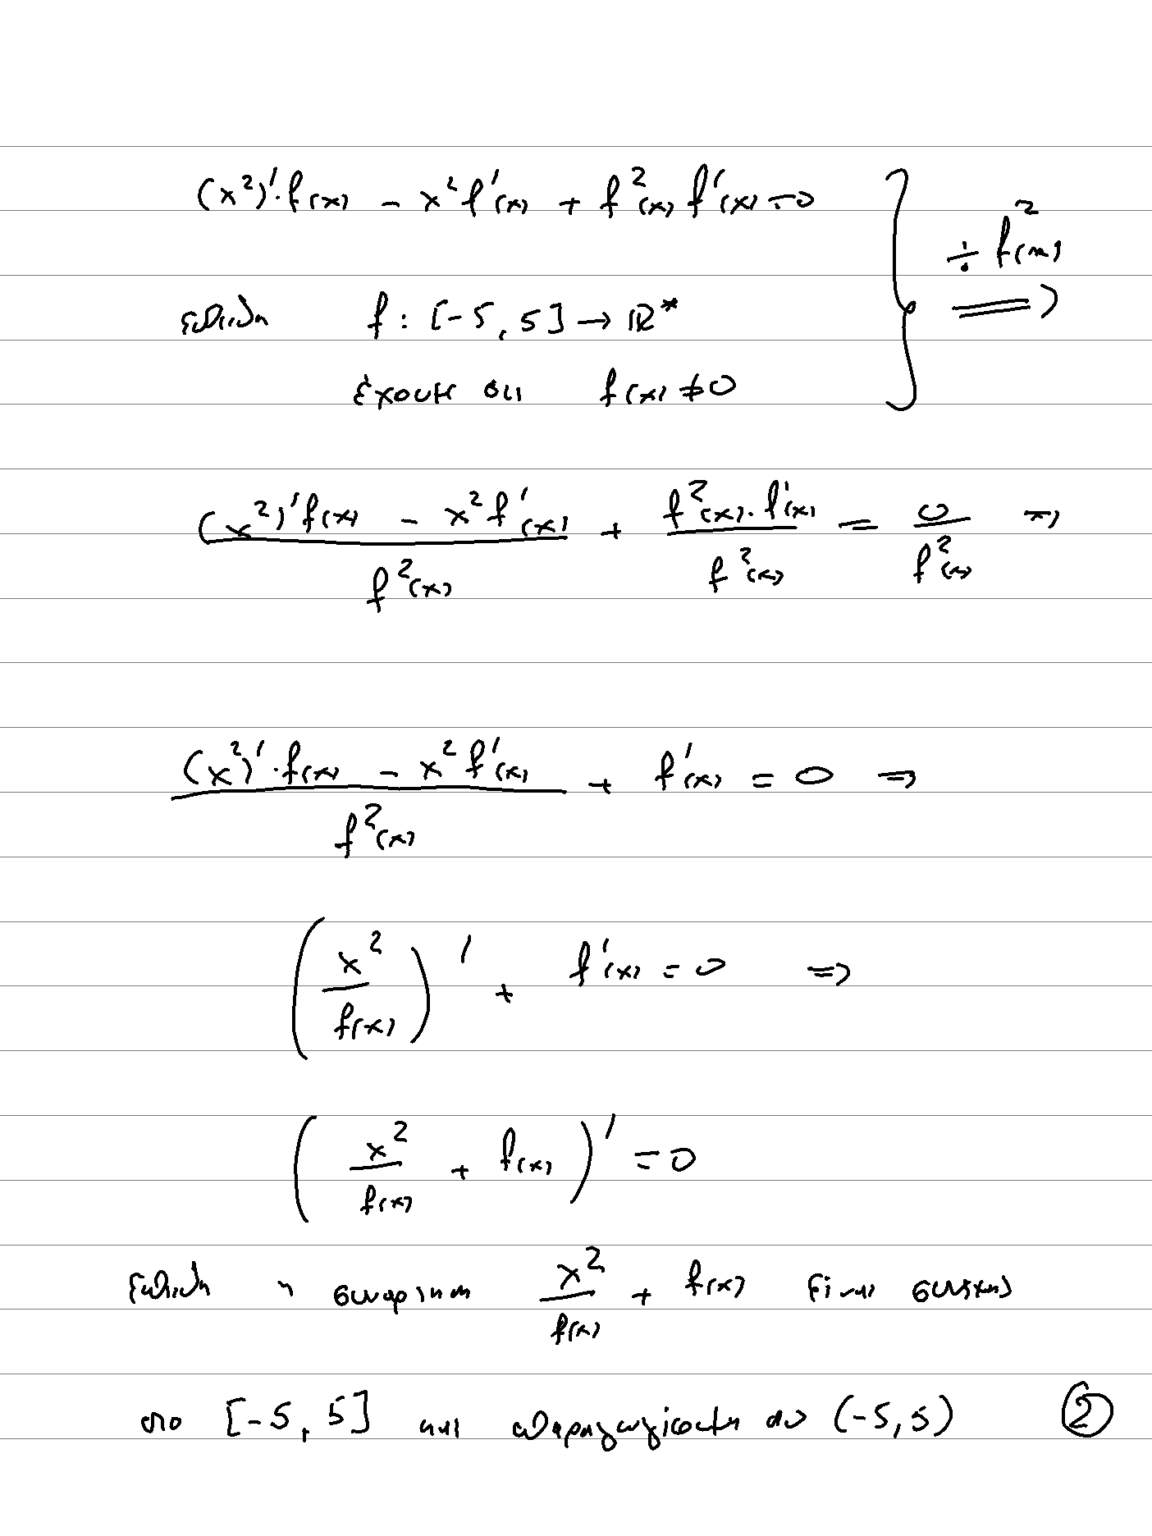 (x²)'·f(x) - x² f'(x) + f²(x) f'(x) = 0 } ÷ f²(x) ⟹
επειδή f : [-5, 5] → ℝ*
έχουμε ότι f(x) ≠ 0
((x²)' f(x) - x² f'(x)) / f²(x) + (f²(x)·f'(x)) / f²(x) = 0 / f²(x) ⇒
((x²)'·f(x) - x² f'(x)) / f²(x) + f'(x) = 0 ⇒
(x² / f(x))' + f'(x) = 0 ⇒
(x² / f(x) + f(x))' = 0
επειδή η συνάρτηση x² / f(x) + f(x) είναι συνεχής
στο [-5, 5] και παραγωγίσιμη στο (-5, 5) ②